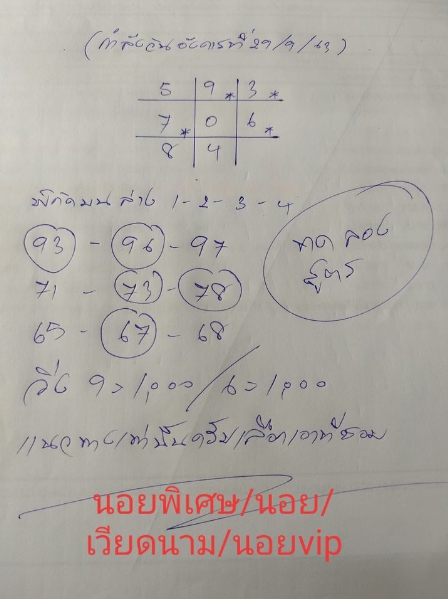 (กำลังวันอังคารที่ 29/9/63)
5 9* 3*
7* 0 6*
8 4
พิกัดบน ล่าง 1-2-3-4
93 - 96 - 97
71 - 73 - 78
65 - 67 - 68
ทดลอง
สูตร
วิ่ง 9=1,000 / 6=1,000
แนวทางเท่านั้นครับเลือกเอาที่ชอบ
นอยพิเศษ/นอย/
เวียดนาม/นอยvip